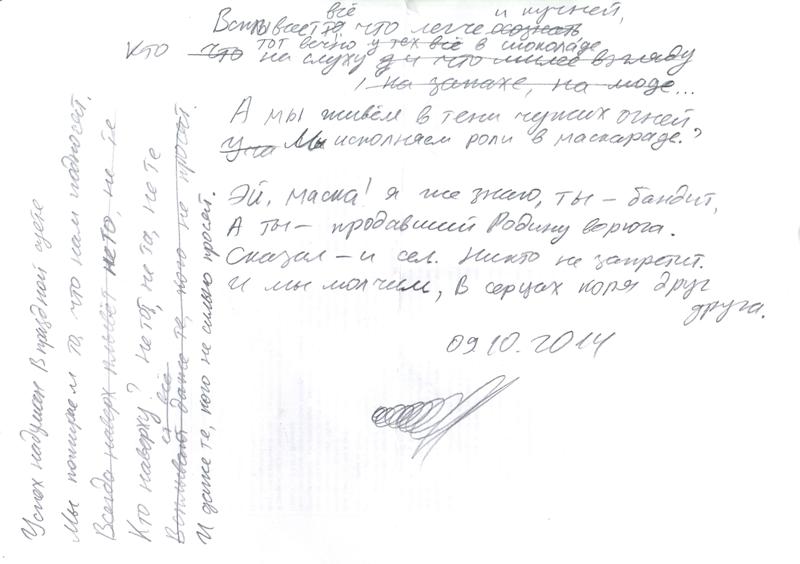 всё и шумней,
Всплывает то что легче осознать
Кто что тот вечно у тех всё в шоколаде
на слуху и что милее взгляду
, на запахе, на моде...
А мы живём в тени чужих огней
Мы исполняем роли в маскараде?
Эй, маска! я же знаю, ты – бандит,
А ты – продавший Родину ворюга.
Сказал – и сел. Никто не запретит.
И мы молчим, в серцах коря друг
друга.
09.10.2014
Успех надуман в праздной суете
Мы пожираем то, что нам подносят.
Всегда наверх плывёт не то, не те
Кто наверху? Не тот, не та, не те
и всё
Всплывают даже те, кого не просят.
И даже те, кого не сильно просят.